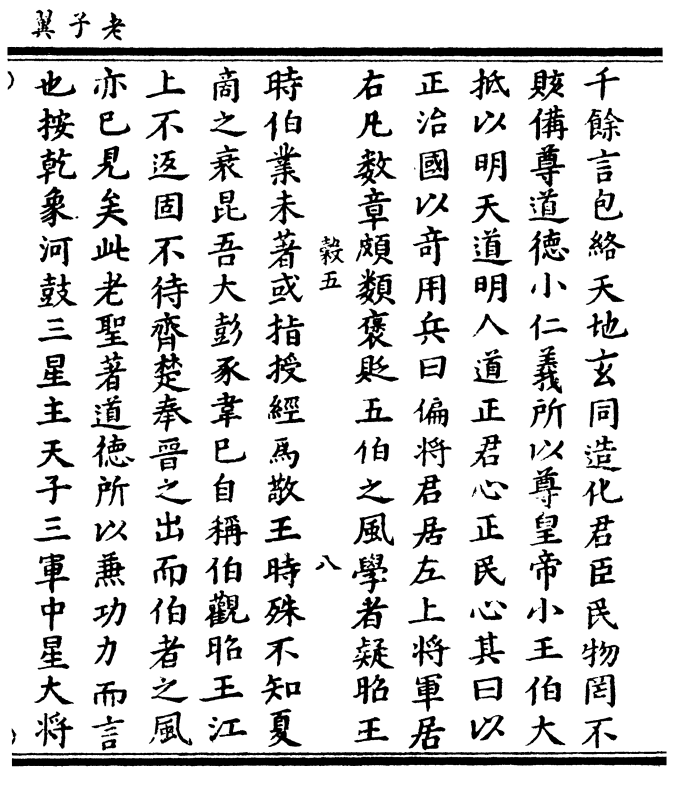 老子翼
千餘言包絡天地玄同造化君臣民物罔不
賅備尊道德小仁義所以尊皇帝小王伯大
抵以明天道明人道正君心正民心其曰以
正治國以奇用兵曰偏將君居左上將軍居
右凡數章頗類褒貶五伯之風學者疑昭王
㲄五 八
時伯業未著或指授經為敬王時殊不知夏
商之衰昆吾大彭豕韋巳自稱伯觀昭王江
上不返固不待齊楚奉晉之出而伯者之風
亦巳見矣此老聖著道德所以兼功力而言
也按乾象河鼓三星主天子三軍中星大將